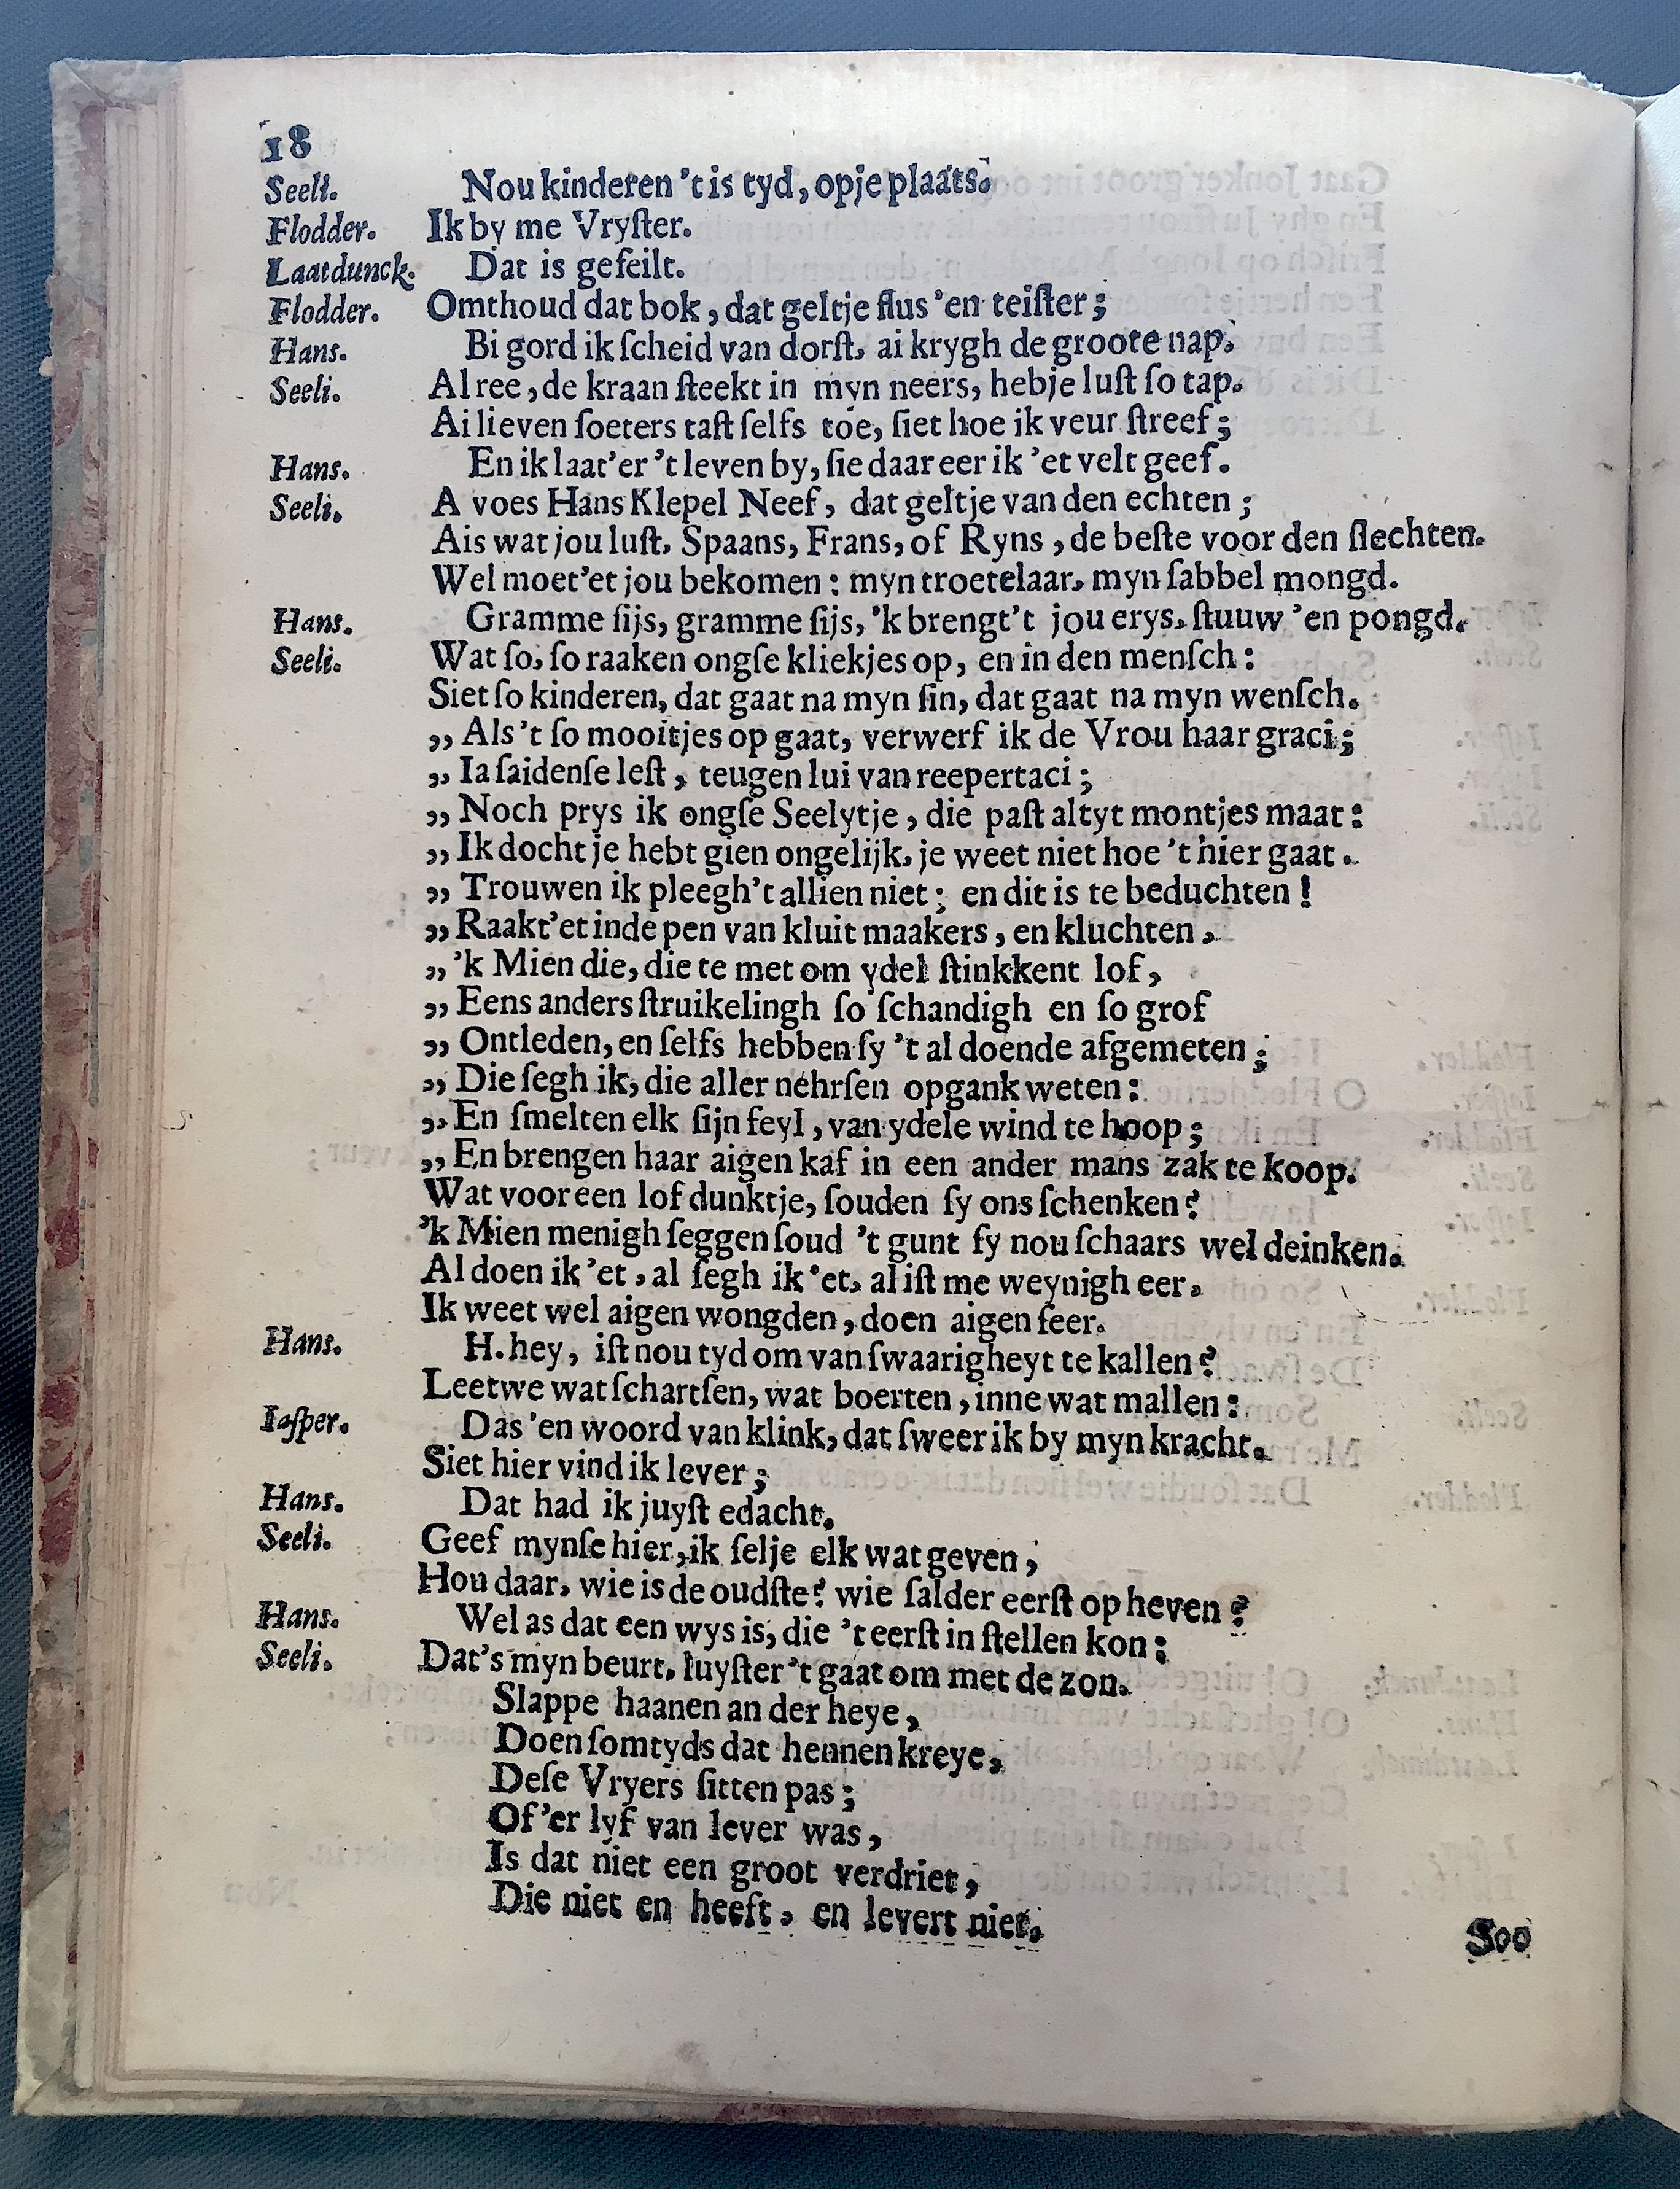 18
Seeli. Nou kinderen 't is tyd, op je plaats.
Flodder. Ik by me Vryſter.
Laatdunck. Dat is gefeilt.
Flodder. Omthoud dat bok, dat geltje flus 'en teiſter;
Hans. Bi gord ik ſcheid van dorſt, ai krygh de groote nap.
Seeli. Al ree, de kraan ſteekt in myn neers, heb je luſt ſo tap.
Ai lieven ſoeters taſt ſelfs toe, ſiet hoe ik veur ſtreef;
Hans. En ik laat'er 't leven by, ſie daar eer ik 'et velt geef.
Seeli. A voes Hans Klepel Neef, dat geltje van den echten;
Ais wat jou luſt, Spaans, Frans, of Ryns, de beſte voor den ſlechten.
Wel moet'et jou bekomen: myn troetelaar, myn ſabbel mongd.
Hans. Gramme ſijs, gramme ſijs, 'k brengt't jou erys, ſtuuw 'en pongd.
Seeli. Wat ſo, ſo raaken ongſe kliekjes op, en in den menſch:
Siet ſo kinderen, dat gaat na myn ſin, dat gaat na myn wenſch.
„ Als 't ſo mooitjes op gaat, verwerf ik de Vrou haar graci;
„ Ia ſaidenſe leſt, teugen lui van reepertaci;
„ Noch prys ik ongſe Seelytje, die paſt altyt montjes maat:
„ Ik docht je hebt gien ongelijk, je weet niet hoe 't hier gaat.
„ Trouwen ik pleegh't allien niet; en dit is te beduchten!
„ Raakt'et inde pen van kluit maakers, en kluchten,
„ 'k Mien die, die te met om ydel ſtinkkent lof,
„ Eens anders ſtruikelingh ſo ſchandigh en ſo grof
„ Ontleden, en ſelfs hebben ſy 't al doende afgemeten;
„ Die ſegh ik, die aller nehrſen opgank weten:
„ En ſmelten elk ſijn feyl, van ydele wind te hoop;
„ En brengen haar aigen kaf in een ander mans zak te koop.
Wat voor een lof dunktje, ſouden ſy ons ſchenken?
'k Mien menigh ſeggen ſoud 't gunt ſy nou ſchaars wel deinken.
Al doen ik 'et, al ſegh ik 'et, al iſt me weynigh eer,
Ik weet wel aigen wongden, doen aigen ſeer.
Hans. H. hey, iſt nou tyd om van ſwaarigheyt te kallen?
Leetwe wat ſchartſen, wat boerten, inne wat mallen:
Iaſper. Das 'en woord van klink, dat ſweer ik by myn kracht.
Siet hier vind ik lever;
Hans. Dat had ik juyſt edacht.
Seeli. Geef mynſe hier, ik ſelje elk wat geven,
Hou daar, wie is de oudſte? wie ſalder eerſt op heven?
Hans. Wel as dat een wys is, die 't eerſt in ſtellen kon:
Seeli. Dat's myn beurt, luyſter 't gaat om met de zon.
Slappe haanen an der heye,
Doen ſomtyds dat hennen kreye,
Deſe Vryers ſitten pas;
Of 'er lyf van lever was,
Is dat niet een groot verdriet,
Die niet en heeft, en levert niet.
Soo